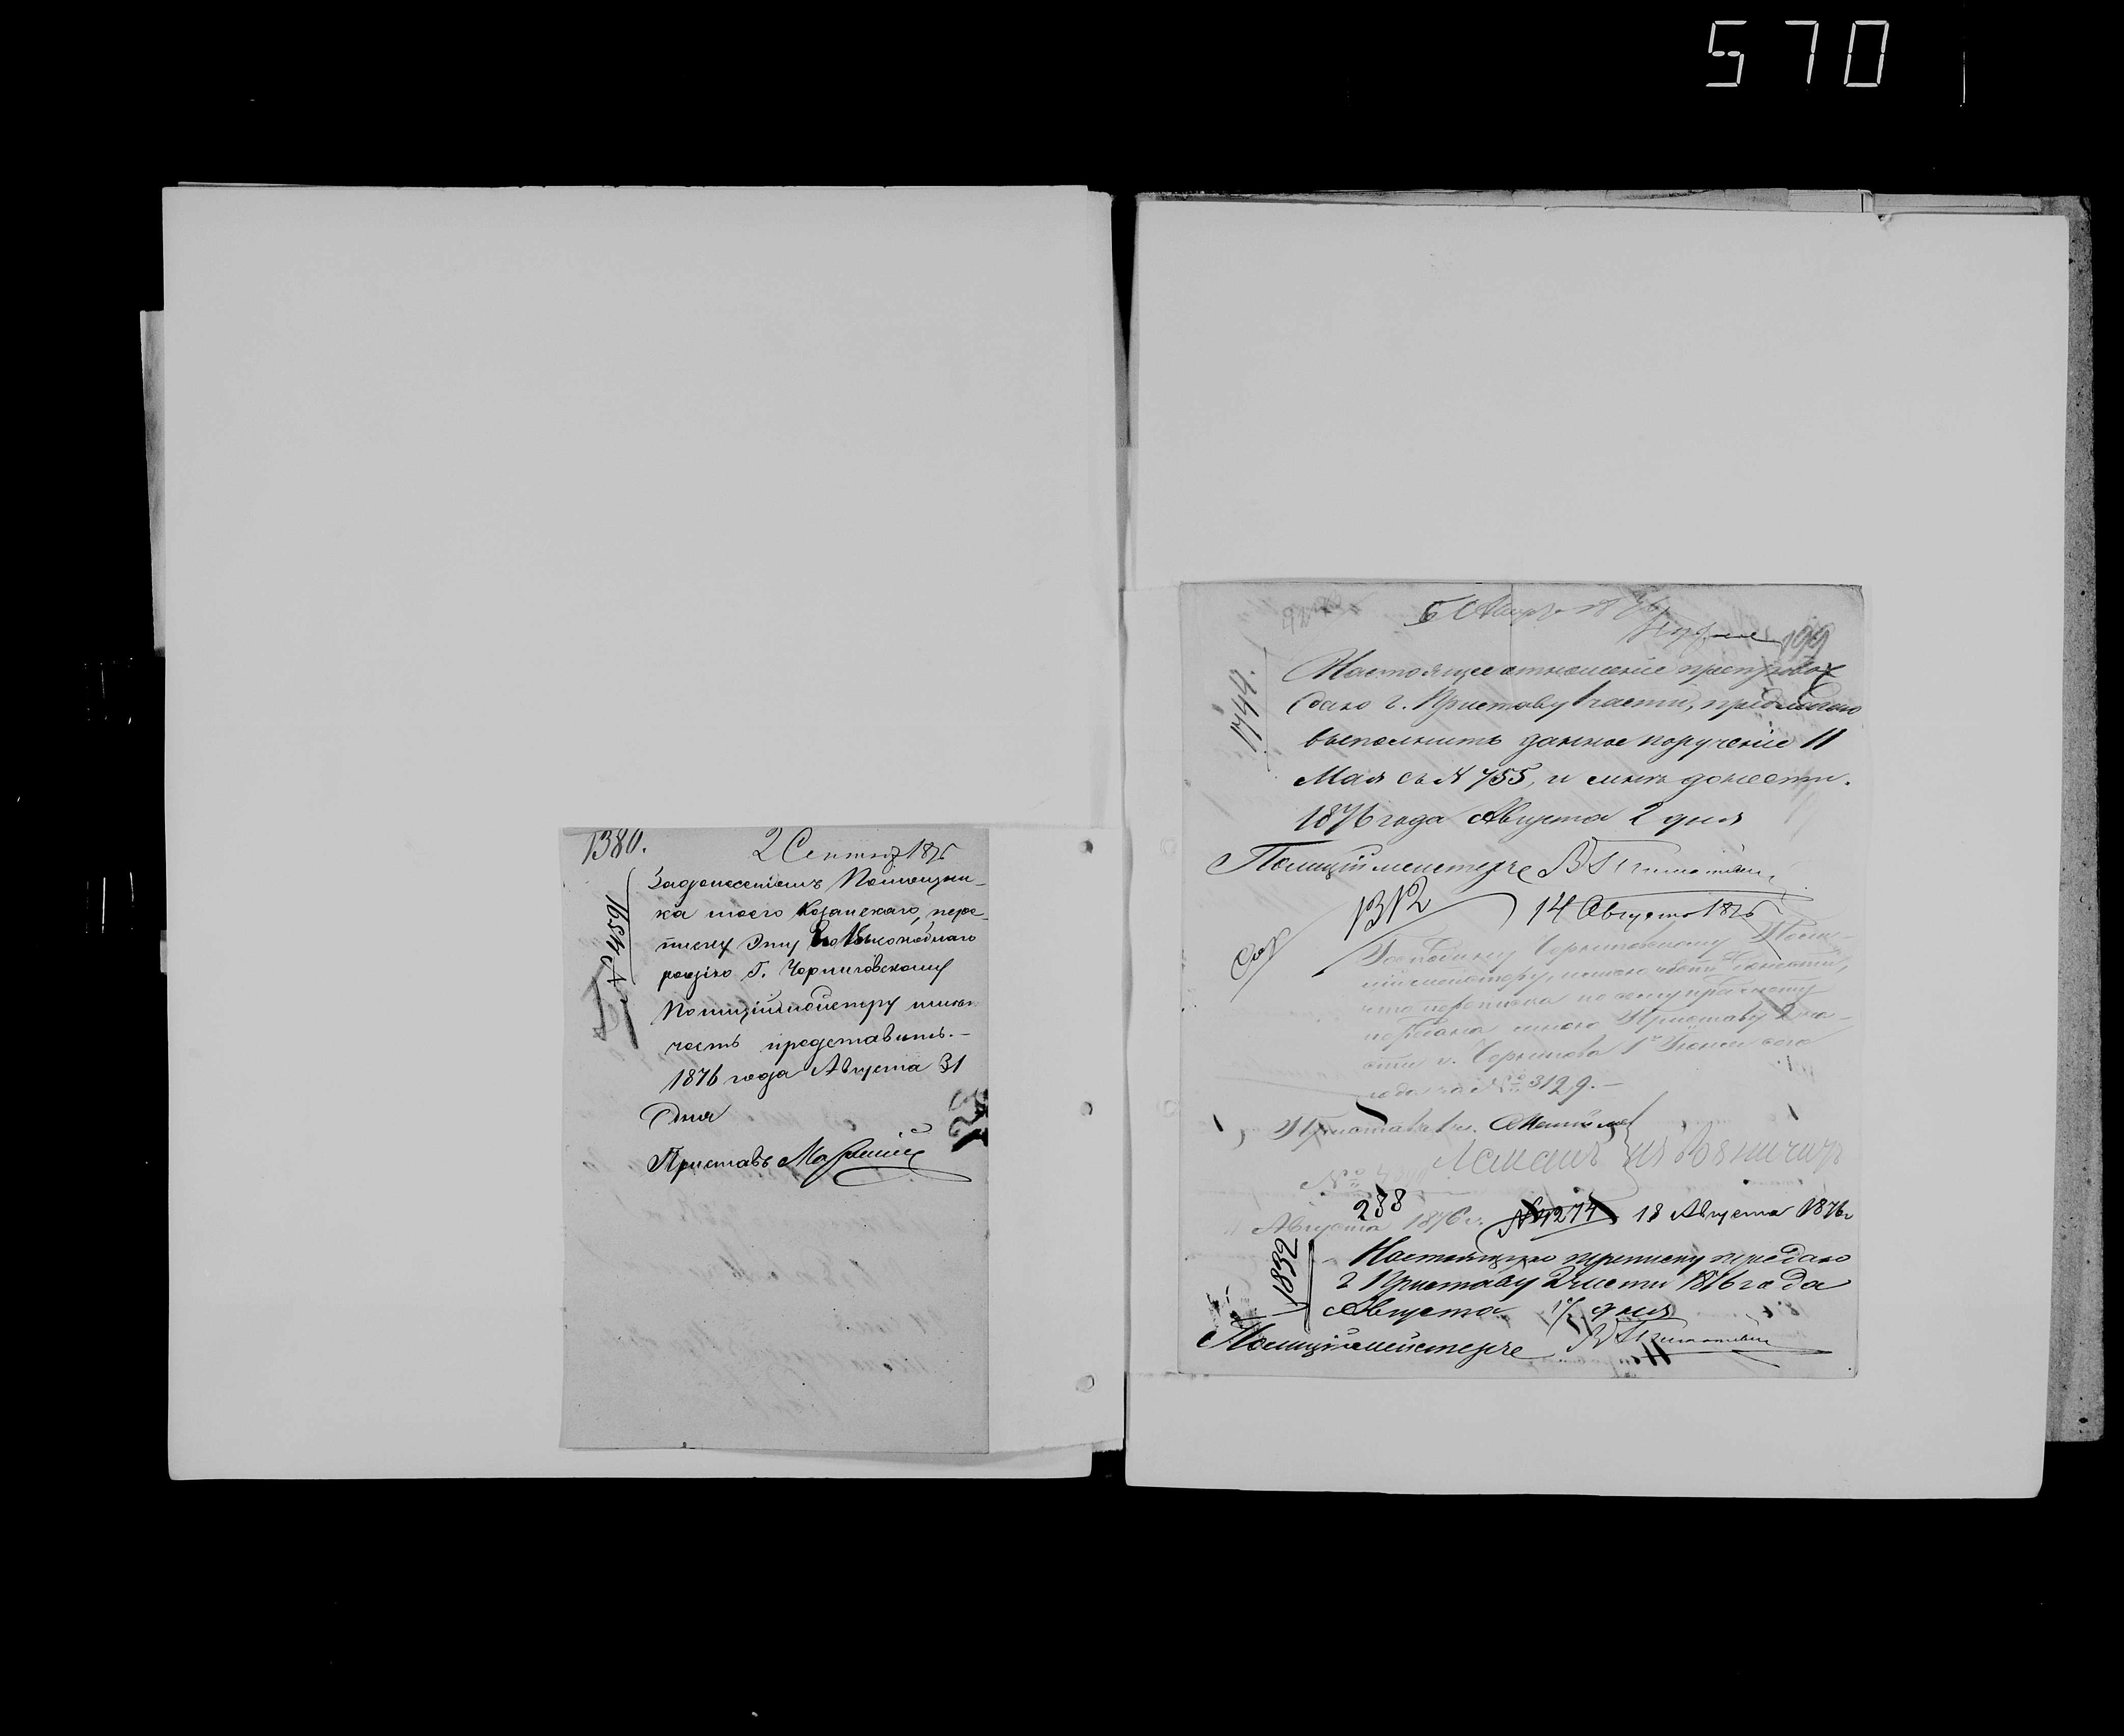 570
1380.
2 Сентяб 1876
№ 4591
За донесеніемъ Помощни-
ка моего Козанскаго, пере-
писку эту Его Высокоблаго
родію Г. Черниговскому
Полиціймейстеру имѣю
честь представить.-
1876 года Августа 31
Дня
Приставъ
199
1744.
Настоящее отношеніе препровож
даю г. Приставу 1 части, предлагаю
выполнить данное порученіе 11
Мая съ № 755, и мнѣ донести.
1876 года Августа 2 дня
Полиціймейстеръ
1312
14 Августа 1876
Господину Черниговскому Поли-
ціймейстеру, имѣю честь донести,
что переписка по сему предмету
передана мною Приставу 2 ча-
сти г. Чернигова 1го Іюня сего
года за № 3129.-
Приставъ 1 ч.
№
288
Августа 1876 г. № 1274 18 Августа 1876 г
1892
Настоящую переписку передаю
г Приставу 2 части 1876 года
Августа 17 дня
Полиціймейстеръ